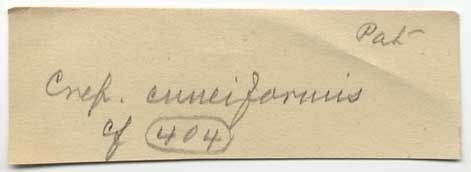 Pat
Crep. cuneiformis
cf 404